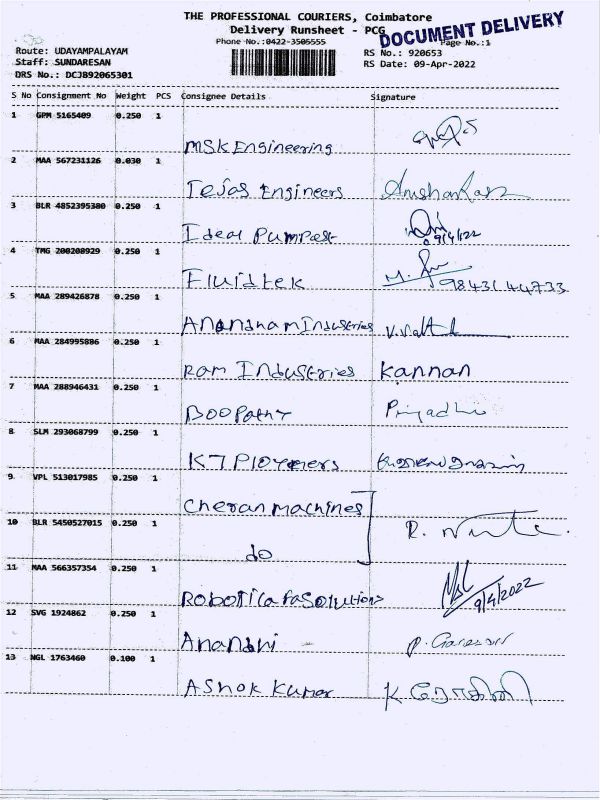 THE PROFESSIONAL COURIERS, Coimbatore
Delivery Runsheet - PCG
DOCUMENT DELIVERY
Phone No.:0422-3505555
Page No.:1
Route: UDAYAMPALAYAM
RS No.: 920653
Staff: SUNDARESAN
RS Date: 09-Apr-2022
DRS No.: DCJB92065301
S No Consignment No Weight PCS Consignee Details Signature
1 GPM 5165409 0.250 1
MSK Engineering
2 MAA 567231126 0.030 1
Tejas Engineers
3 BLR 4852395380 0.250 1
Ideal Pumpest 9/4/22
4 TMG 200208929 0.250 1
Fluidtek 9843144733
5 MAA 289426878 0.250 1
Anandham Industries
6 MAA 284995886 0.250 1
Ram Industries Kannan
7 MAA 288946431 0.250 1
Boopathy
8 SLM 293068799 0.250 1
KT
9 VPL 513017985 0.250 1
Cheran machines
10 BLR 5450527015 0.250 1
do
11 MAA 566357354 0.250 1
9/4/2022
12 SVG 1924862 0.250 1
Anandhi
13 NGL 1763460 0.100 1
Ashok Kumar